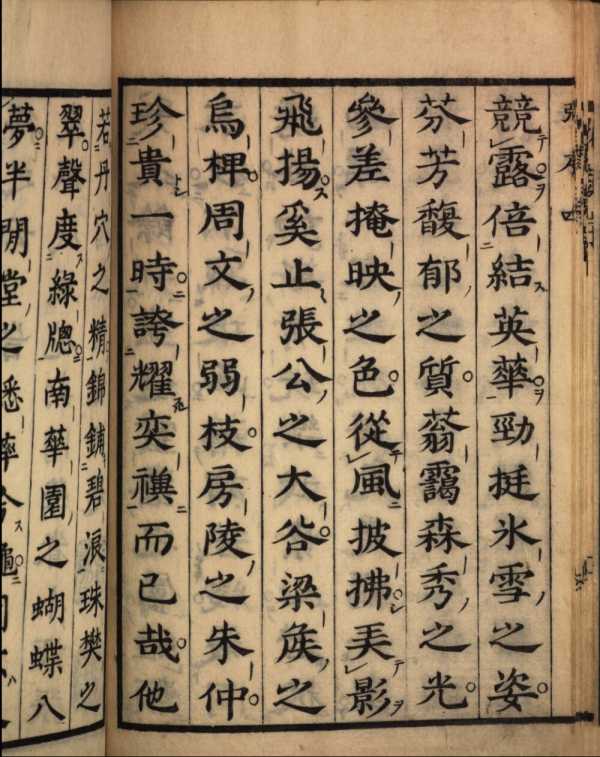 競露倍結英華勁挺氷雪之姿
芬芳馥郁之質蓊靄森秀之光
參差掩映之色從風披拂弄影
飛揚奚止張公之大谷梁矦之
烏椑周文之弱枝房陵之朱仲
珍貴一時誇耀奕禩而已哉他
若丹穴之精錦鋪碧浪珠樊之
翠聲度綠牕南華園之蝴蝶八
夢半閒堂之